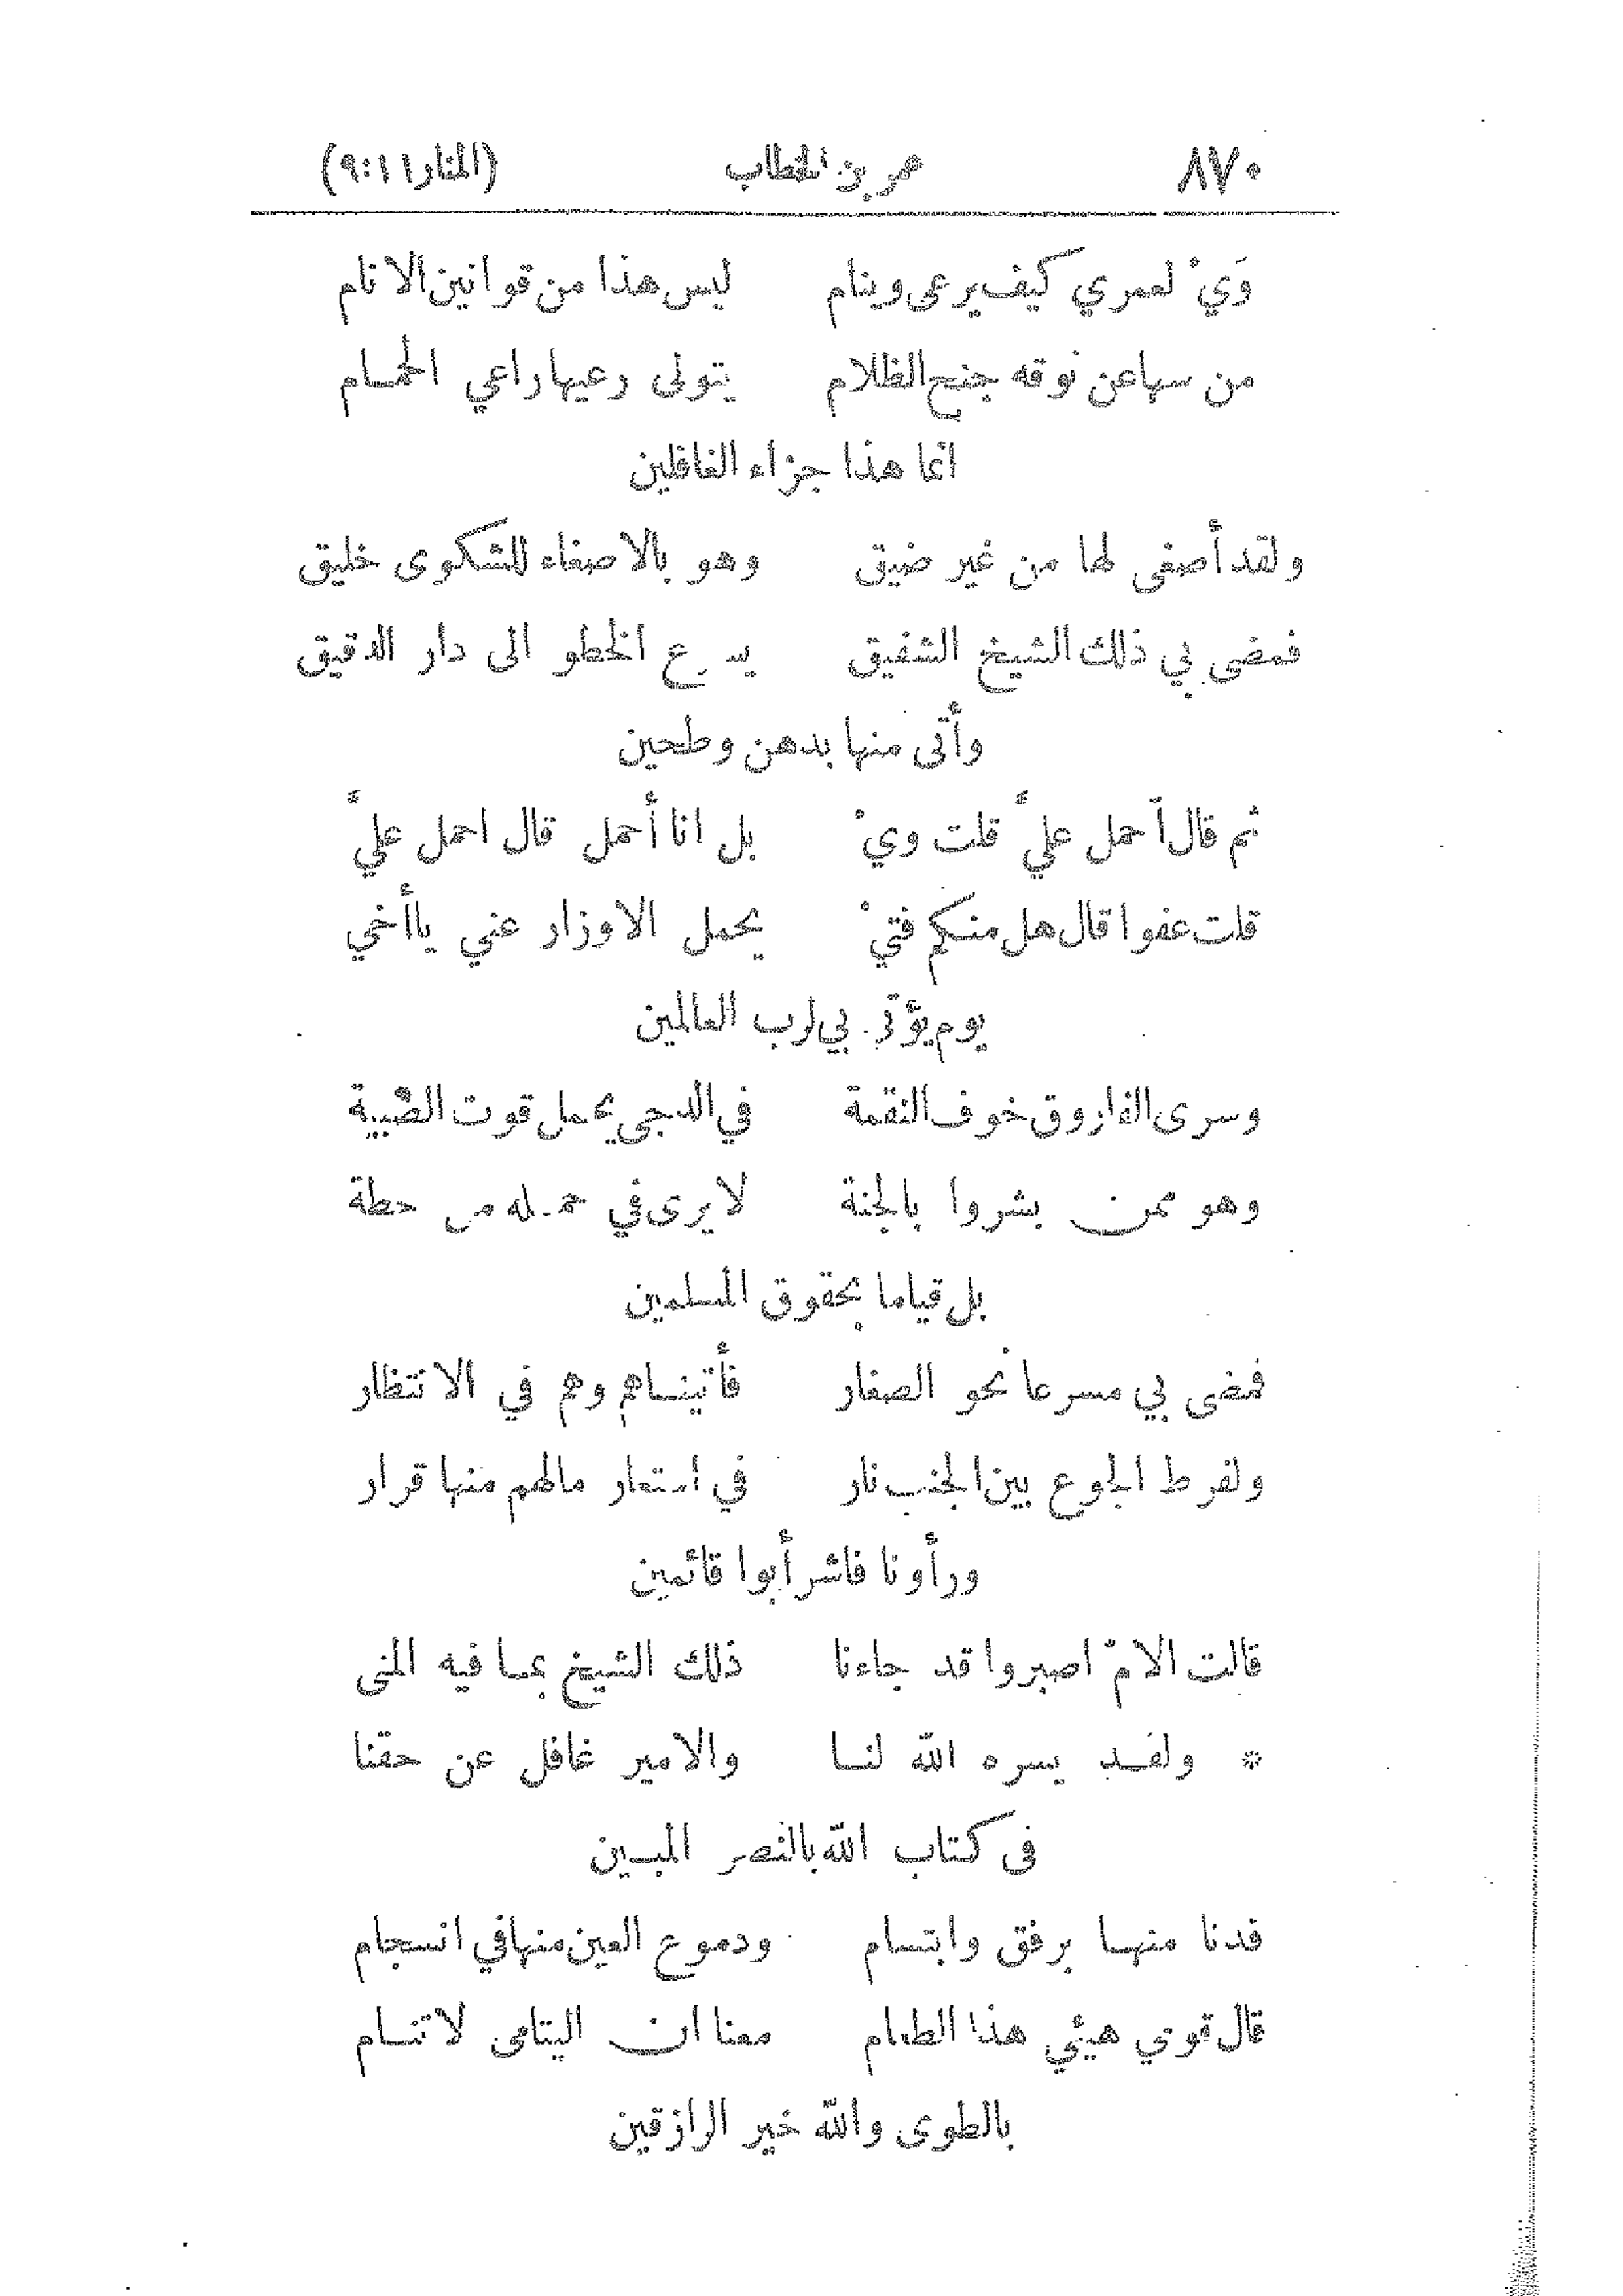 ٨٧٠ عمر بن الخطاب (المنار ١١:٩)
وَيْ لعمري كيف يرعى وينام ليس هذا من قوانين الانام
من سها عن نوقه جنح الظلام يتولى رعيها راعي الحمام
انما هذا جزاء الغافلين
ولقد أصغى لها من غير ضيق وهو بالاصغاء للشكوى خليق
فمضى بي ذلك الشيخ الشفيق يسرع الخطو الى دار الدقيق
وأتى منها بدهن وطحين
ثم قال آحمل عليَّ قلت ويْ بل انا أحمل قال احمل عليَّ
قلت عفوا قال هل منكم فتيْ يحمل الاوزار عني يا أخي
يوم يؤتى بي لرب العالمين
وسرى الفاروق خوف النقمة في الدجى يحمل قوت الصّبية
وهو ممن بشروا بالجنة لا يرى في حمله من حطة
بل قياما بحقوق المسلمين
فمضى بي مسرعا نحو الصغار فأتيناهم وهم في الانتظار
ولفرط الجوع بين الجنب نار في استعار مالهم منها قرار
ورأونا فاشرأبوا قائمين
قالت الامّ اصبروا قد جاءنا ذلك الشيخ بما فيه المنى
* ولقد يسره الله لنا والامير غافل عن حقنا
في كتاب الله بالنصر المبين
فدنا منها برفق وابتسام ودموع العين منها في انسجام
قال قومي هيئي هذا الطعام معنا ان اليتامى لا تنام
بالطوى والله خير الرازقين